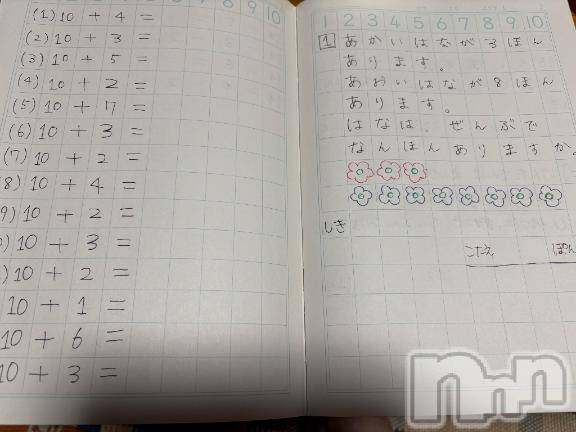 (1) 10 + 4 =
(2) 10 + 3 =
(3) 10 + 5 =
(4) 10 + 2 =
(5) 10 + 17 =
(6) 10 + 3 =
(7) 10 + 2 =
8) 10 + 4 =
9) 10 + 2 =
) 10 + 3 =
) 10 + 2 =
10 + 1 =
10 + 6 =
10 + 3 =
8 9 10
1 2 3 4 5 6 7 8 9 10
1 あかいはなが3ほん
あります。
あおいはなが8ほん
あります。
はなは、ぜんぶで
なんほんありますか。
しき
こたえ ぽん
nn